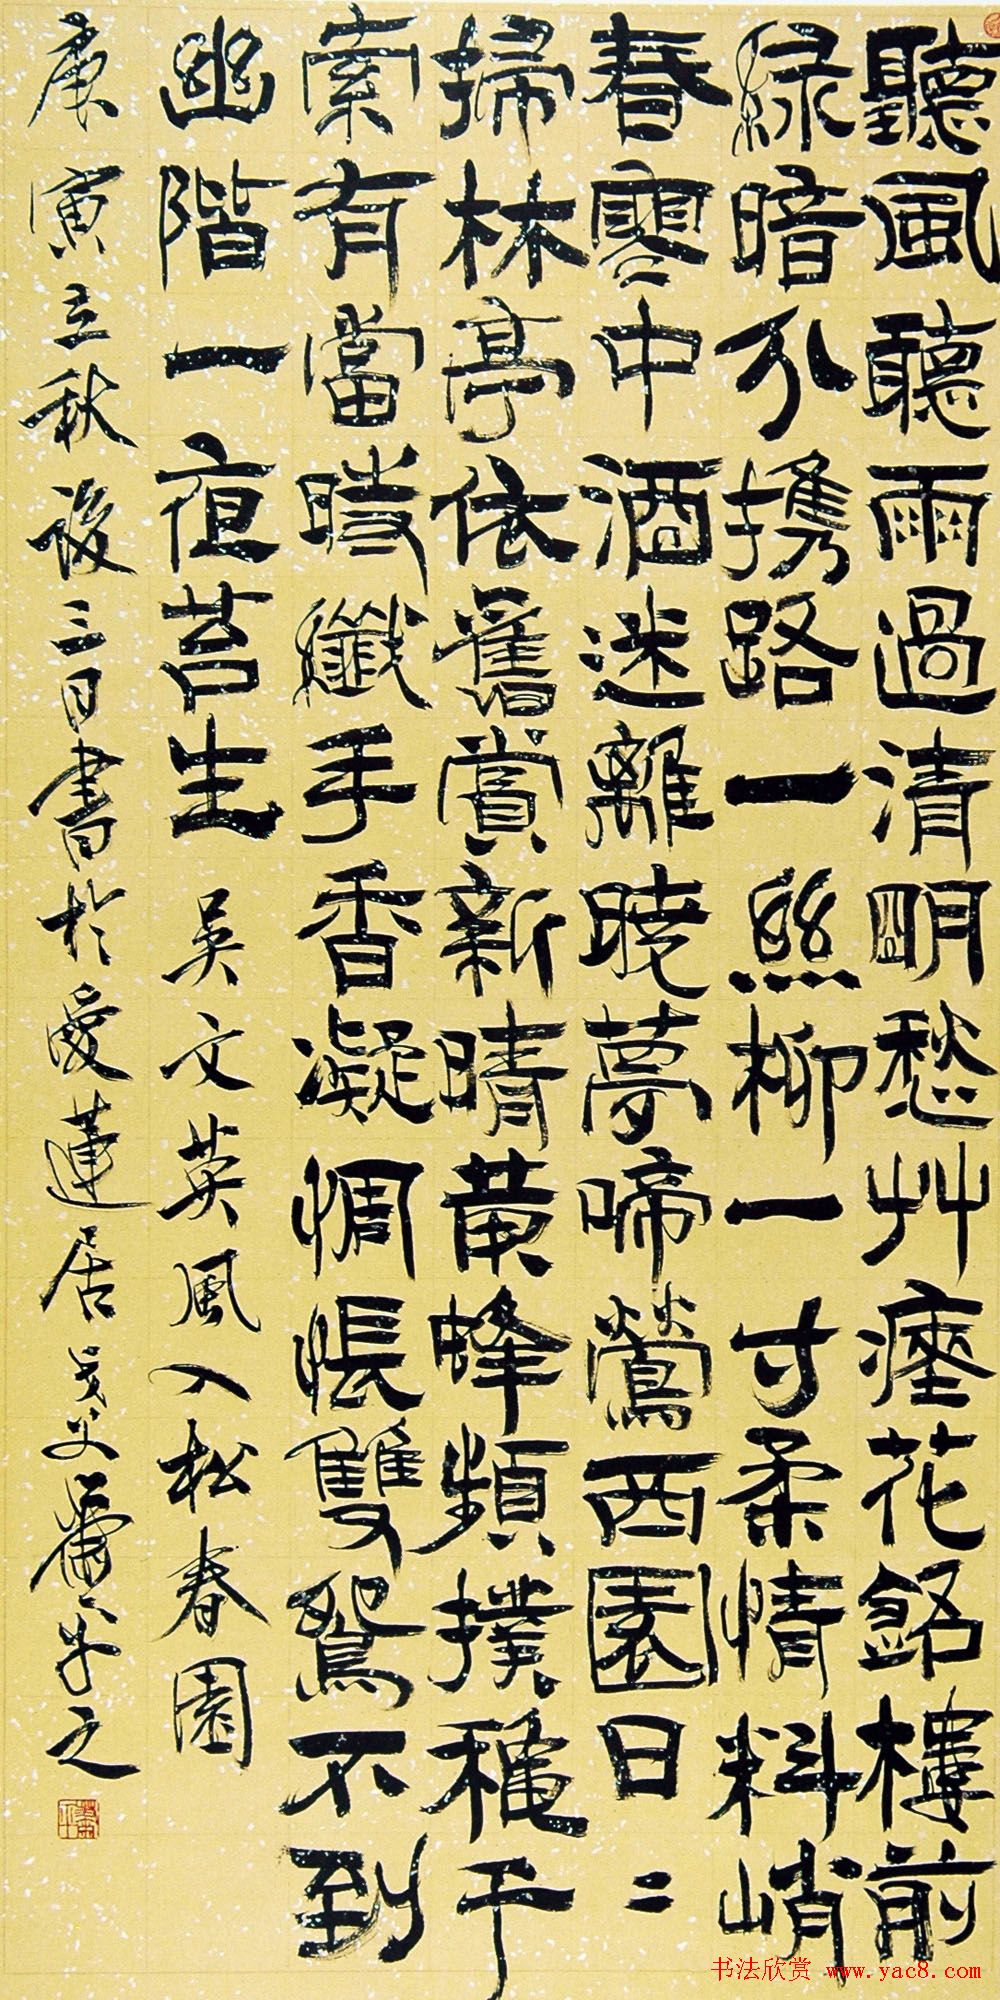 聽風聽雨過清明愁艸瘞花銘樓前
緑暗分攜路一絲柳一寸柔情料峭
春寒中酒迷離曉夢啼鶯西園日〻
掃林亭依舊賞新晴黄蜂頻撲穐千
索有當時纖手香凝惆悵雙鴛不到
幽階一夜苔生 吳文英風入松春園
庚寅立秋後三日書於愛蓮居
书法欣赏 www.yac8.com